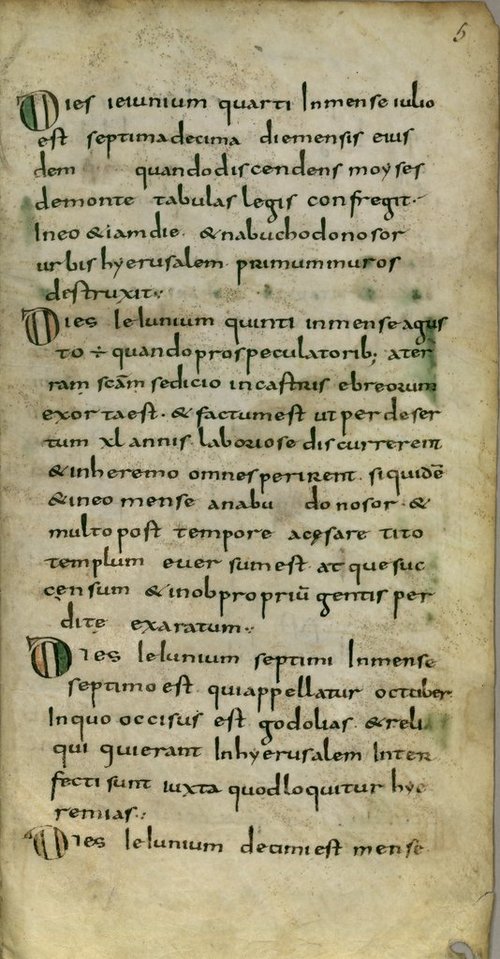 5
Dies ieiunium quarti Inmense iulio
est septimadecima diemensis eius
dem quandodiscendens moyses
demonte tabulas legis confregit.
Ineo &iamdie. &nabuchodonosor
urbishyerusalem primummuros
destruxit.,
Dies Ieiunium quinti inmenseagus
to ÷ quandoprospeculatorib; ater
ram scām sedicio incastris ebreorum
exortaest. &factumest utperdeser
tum xl annis laboriose discurrerent
&inheremo omnesperirent. siquidē
&ineo mense anabu donosor &
multopost tempore acęsare tito
templum euersumest atquesuc
cęnsum &inobpropriū gentis per
ditę exaratum.,
Dies Ieiunium septimi Inmense
septimoest. quiappellatur october
Inquo occisus est godolias. &reli
qui quierant Inhyerusalem Inter
fecti sunt iuxta quodloquitur hye
remias.,
Dies Ieiunium decimiest mense